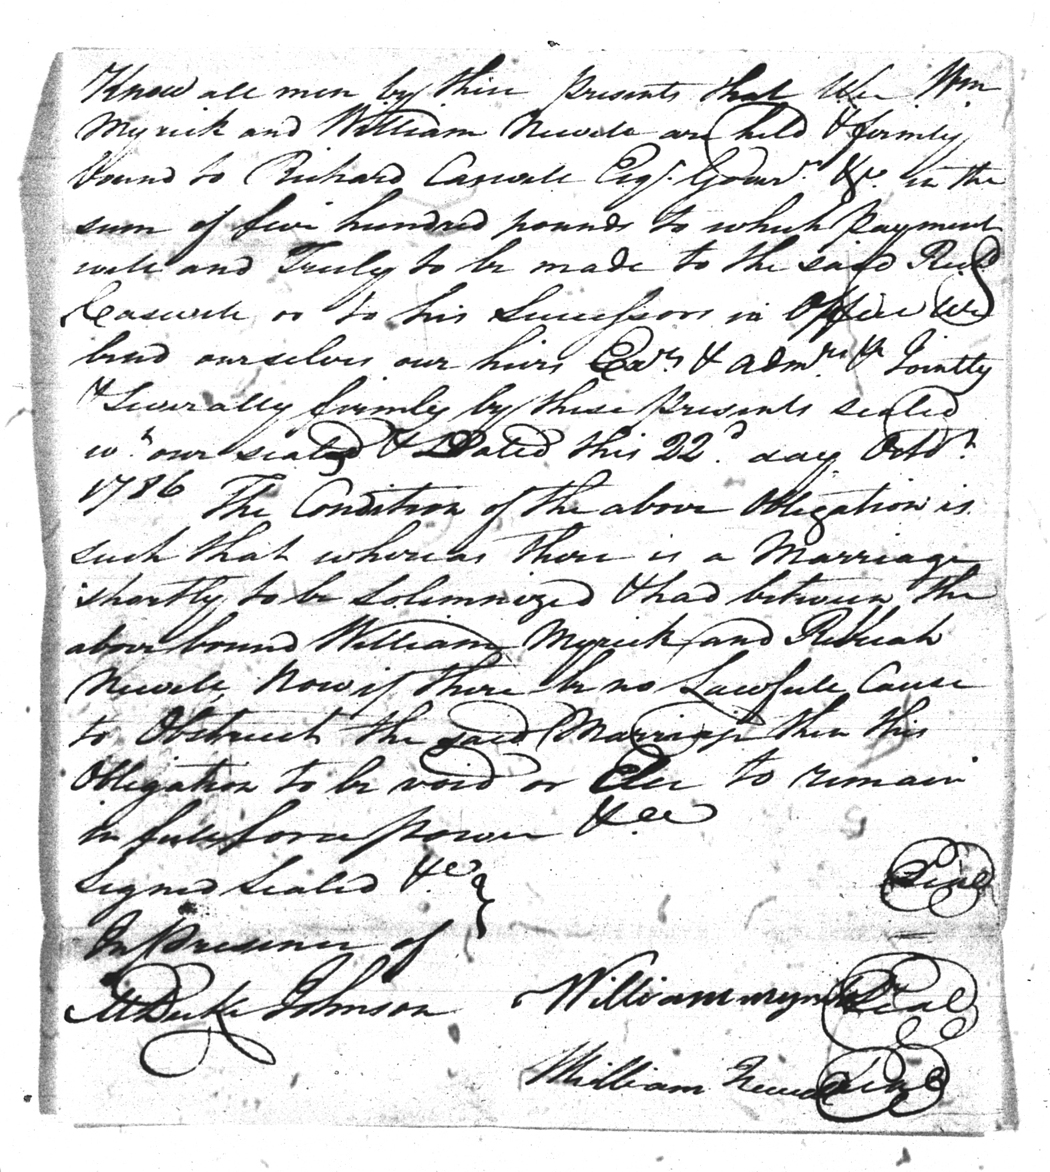 Know all men by these presents that We Wm
Myrick and William Newele are held & firmly
bound to Richard Caswele Esqr. Govr. &c. in the
sum of five hundred pounds to which payment
wele and Truly to be made to the said Richd
Caswele or to his Successors in Office We
bind ourselves our heirs Exrs & Admrs Jointly
& Severally firmly by these presents sealed
wth. our seales & Dated this 22d. day Octobr.
1786 The Condition of the above Obligation is
such that whereas there is a Marriage
shortly to be Solemnized & had between the
above bound William Myrick and Rebecah
Newele Now if there be no Lawfule Cause
to Obstruct the said Marriage then this
Obligation to be void or Else to remain
in fule force power &c
Signed Sealed &c
Seal
In Presence of
M Duke Johnson William myrick Seal
William Newele Seal